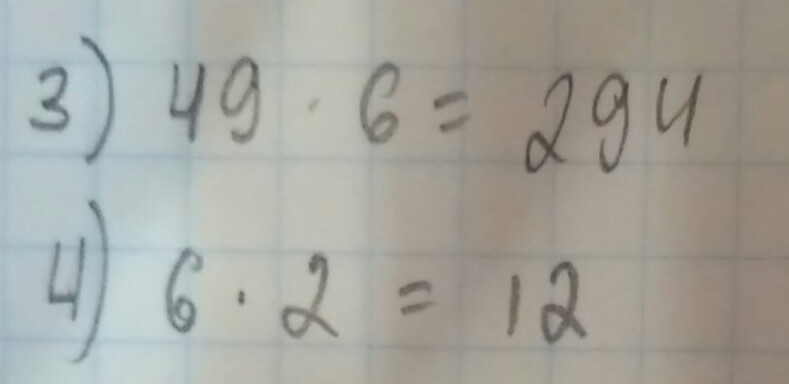 3) 49 · 6 = 294
4) 6 · 2 = 12